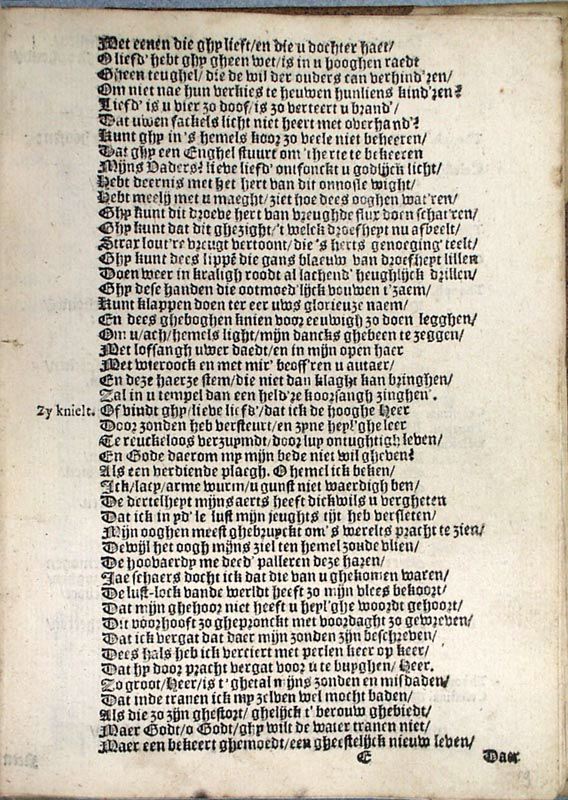 Met eenen die ghy lieft/en die u dochter haet/
O liefd' hebt ghy gheen wet/is in u hooghen raedt
Gheen teughel/ die de wil der ouders can verhind'ren/
Om niet nae hun verkies te heuwen hunliens kind'ren?
Liefd' is u vier zo doof/is zo verteert u brand'/
Dat uwen fackels licht niet heert met overhand'?
Kunt ghy in 's hemels koor zo veele niet beheeren/
Dat ghy een Enghel stuurt om 't herte te bekeeren
Mijns Vaders? lieve liefd' ontfonckt u godlijck licht/
Hebt deernis met het hert van dit onnosle wight/
Hebt meelij met u maeght/ziet hoe dees ooghen wat'ren/
Ghy kunt dit droeve hert van vreughde flux doen schat'ren/
Ghy kunt dat dit ghezight/'t welck droefheyt nu afbeelt/
Strax lout're vreugt vertoont/die 's herts genoeging teelt/
Ghy kunt dees lippē die gans blaeuw van droefheyt lillen
Doen weer in kraligh roodt al lachend' heughlijck drillen/
Ghy dese handen die ootmoed'lijck vouwen t'zaem/
Kunt klappen doen ter eer uws glorieuze naem/
En dees gheboghen knien voor eeuwigh zo doen legghen/
Om u/ach/hemels light/mijn dancks ghebeen te zeggen/
Met lofsangh uwer daedt/en in mijn open haer
Met wieroock en met mir' beoff'ren u autaer/
En deze haerze stem/die niet dan klaght kan bringhen/
Zal in u tempel dan een held're koorsangh zinghen.
Zy knielt. Of vindt ghy/lieve liefd'/dat ick de hooghe Heer
Door zonden heb versteurt/en zyne heyl'ghe leer
Te reuckeloos verzuymdt/door luy ontughtigh leven/
En Gode daerom my mijn bede niet wil gheven?
Als een verdiende plaegh. O hemel ick beken/
Ick/lacy/arme wurm/u gunst niet waerdigh ben/
De dertelheyt mijns aerts heeft dickwils u vergheten
Dat ick in yd'le lust mijn jeughts tijt heb versleten/
Mijn ooghen meest ghebruyckt om 's werelts pracht te zien/
Dewijl het oogh mijns ziel ten hemel zoude vlien/
De hoovaerdy me deed' palleren deze haren/
Jae schaers docht ick dat die van u ghekomen waren/
De lust-lock vande werldt heeft zo mijn vlees bekoort/
Dat mijn ghehoor niet heeft u heyl'ghe woordt gehoort/
Dit voorhooft zo ghepronckt met voordaght zo gewreven/
Dat ick vergat dat daer mijn zonden zijn beschreven/
Dees hals heb ick verciert met perlen keer op keer/
Dat hy door pracht vergat voor u te buyghen/ Heer.
Zo groot/Heer/is t'ghetal mijns zonden en misdaden/
Dat inde tranen ick my zelven wel mocht baden/
Als die zo zijn ghestort/ ghelijck t'berouw ghebiedt/
Maer Godt/o Godt/ghy wilt de water tranen niet/
Maer een bekeert ghemoedt/een gheestelijck nieuw leven/
C Daer
19